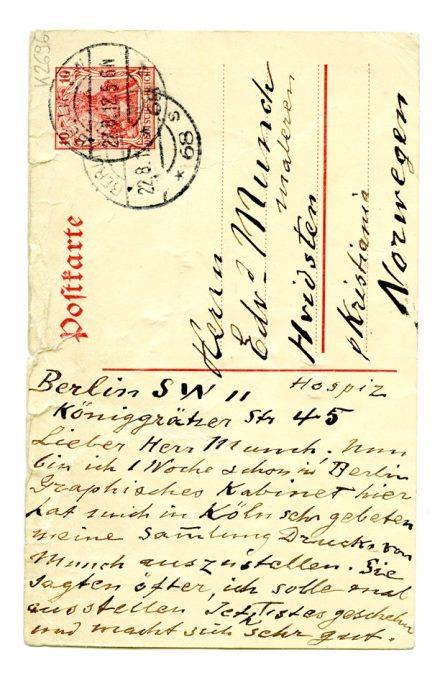 K2696
DEUTSCHES REICH
10 10
BERLIN
22.8.12.5-6N
BERLIN S
22.8.12
* 68
Postkarte
Herrn
Edv. Munch
maleren
Hvidsten
p Kristiania
Norwegen
Berlin SW 11 Hospiz
Königgrätzer Str 45
Lieber Herr Munch. Nun
bin ich 1 Woche schon in Berlin
Graphisches Kabinet hier
hat mich in Köln sehr gebeten
meine Sammlung Drucke von
Munch auszustellen. Sie
sagten öfter, ich solle mal
ausstellen Jetzt ist es geschehn
und macht sich sehr gut.